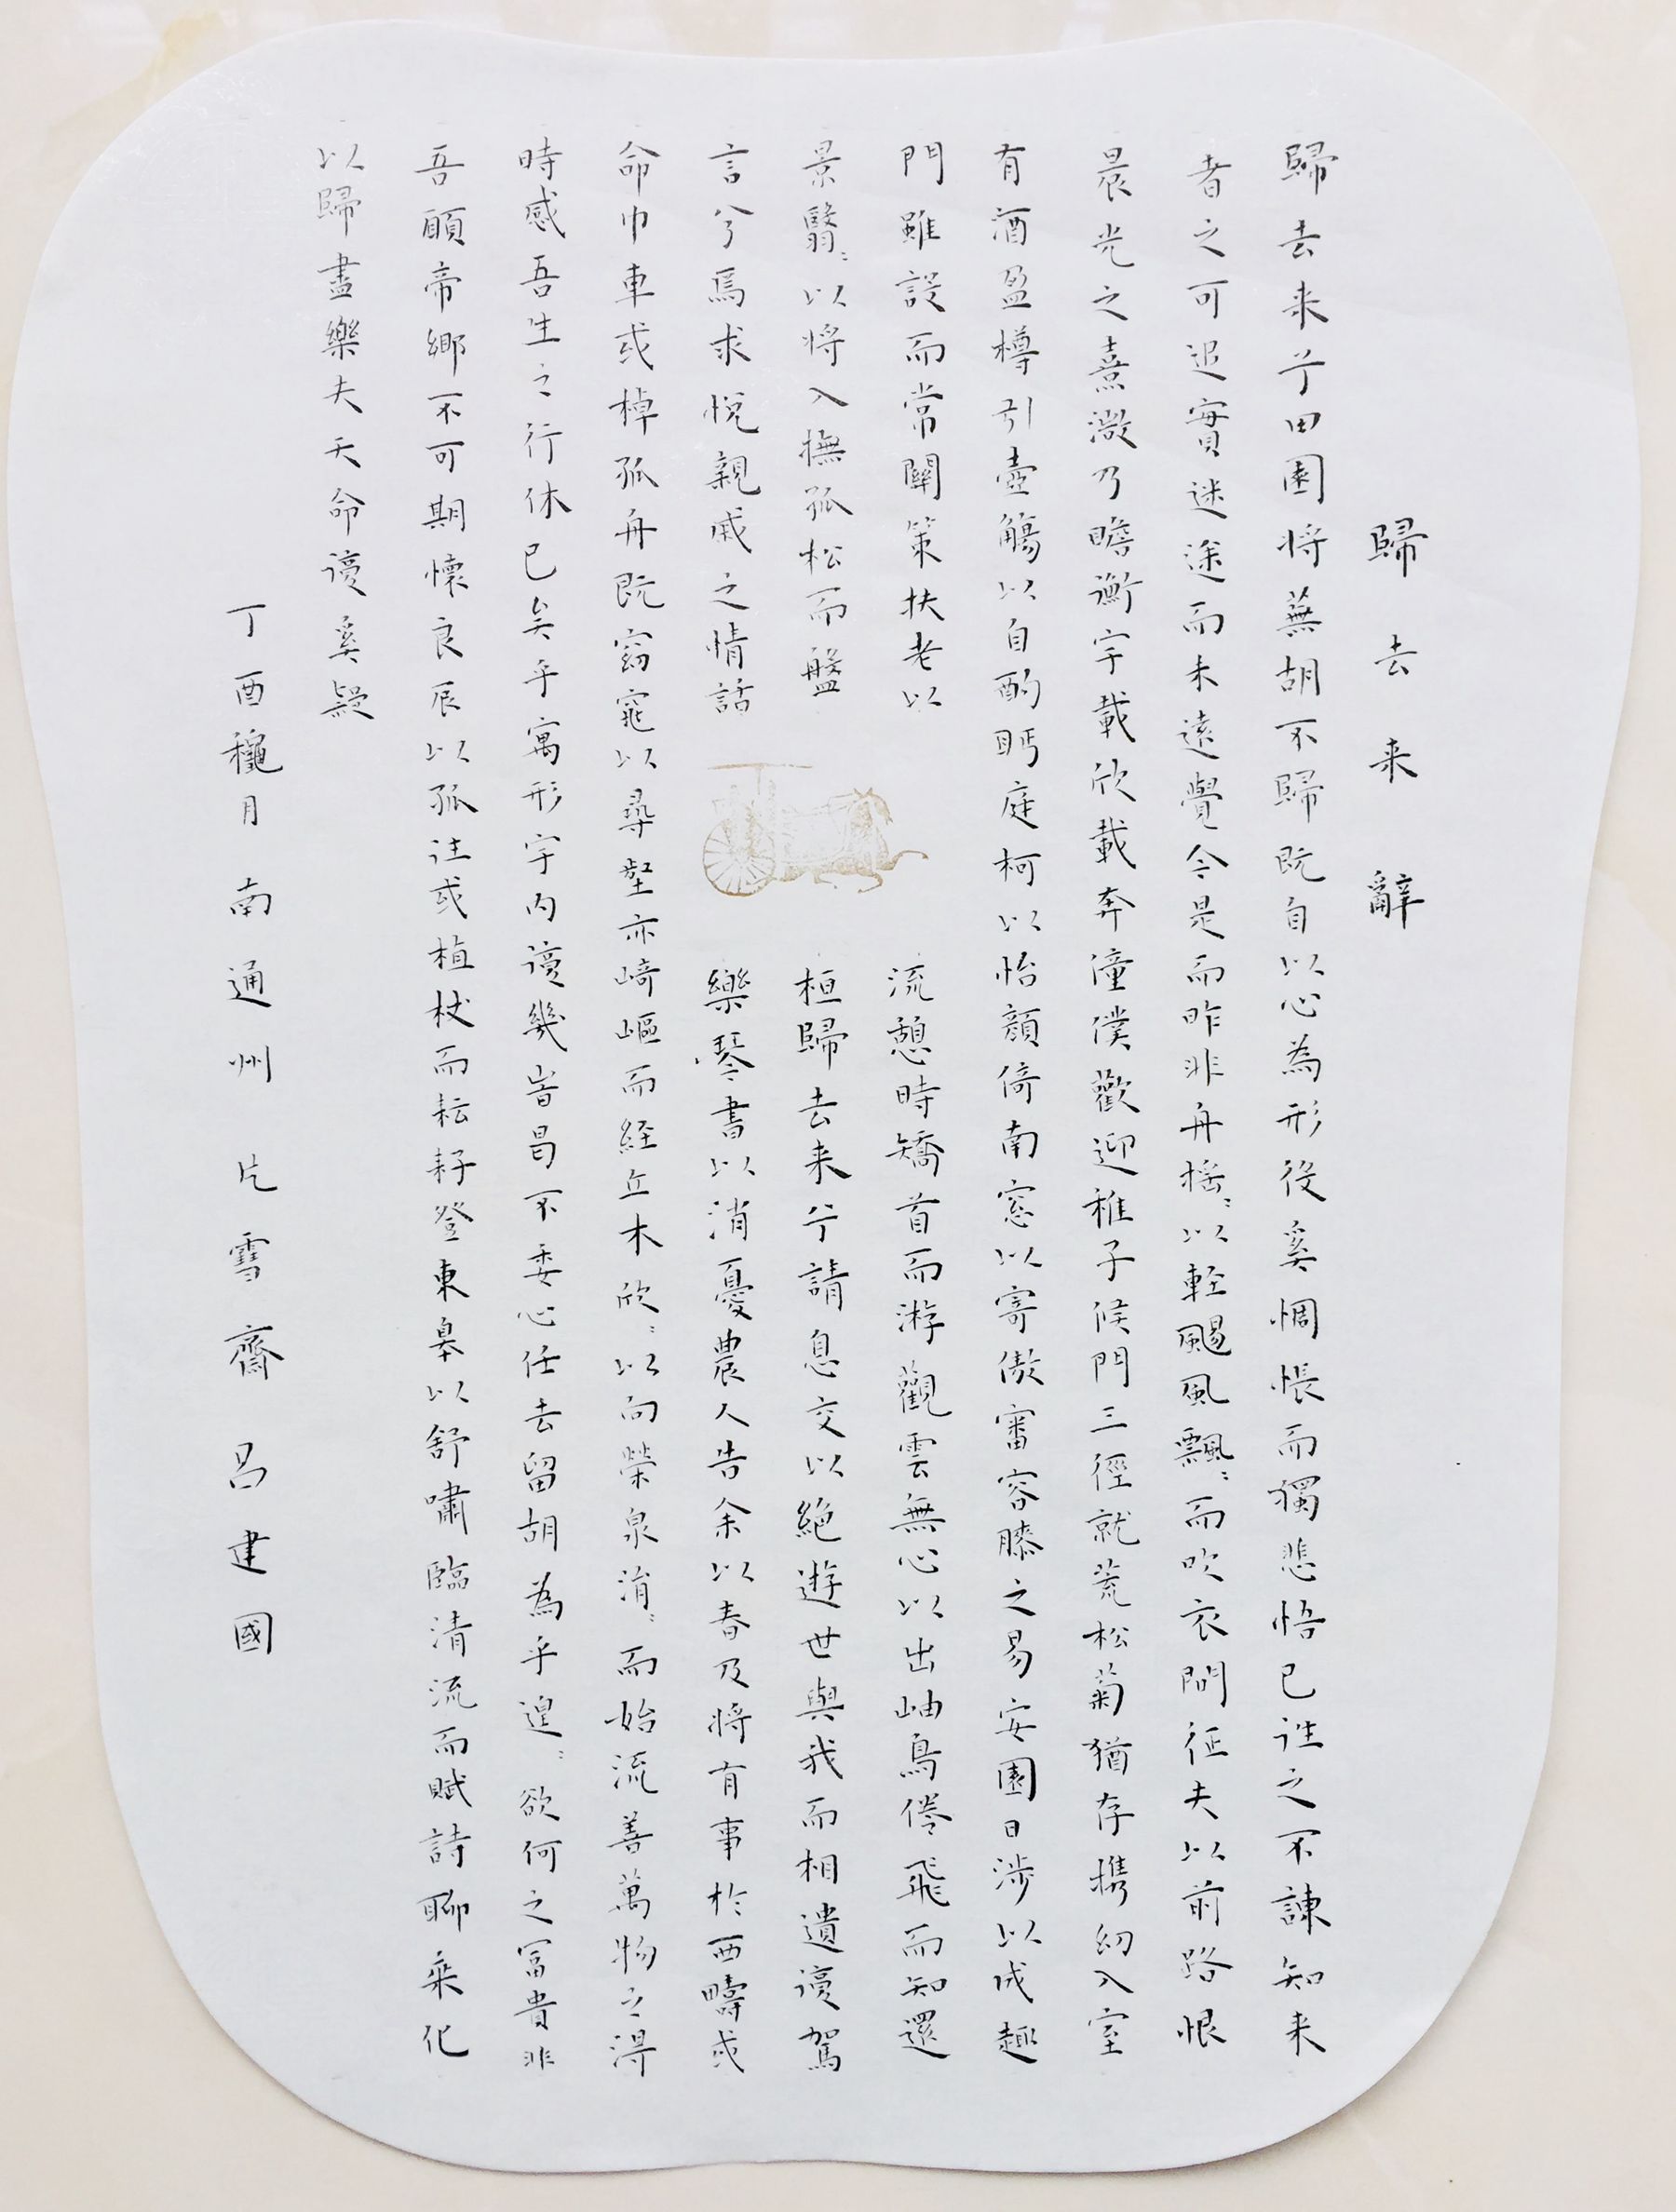 歸去来辭
歸去来兮田園将蕪胡不歸既自以心為形役奚惆悵而獨悲悟已往之不諫知来
者之可追實迷途而未遠覺今是而昨非舟揺〻以輕颺風飄〻而吹衣問征夫以前路恨
晨光之熹微乃瞻衡宇載欣載奔僮僕歡迎稚子候門三徑就荒松菊猶存携幼入室
有酒盈樽引壺觴以自酌眄庭柯以怡顏倚南窓以寄傲審容膝之易安園日涉以成趣
門雖設而常關策扶老以流憩時矯首而游觀雲無心以出岫鳥倦飛而知還
景翳〻以将入撫孤松而盤桓歸去来兮請息交以絕遊世與我而相遺復駕
言兮焉求悅親戚之情話樂琴書以消憂農人告余以春及将有事於西疇或
命巾車或棹孤舟既窈窕以尋壑亦崎嶇而経丘木欣〻以向榮泉涓〻而始流善萬物之得
時感吾生之行休已矣乎寓形宇内復幾旹曷不委心任去留胡為乎遑〻欲何之冨貴非
吾願帝鄉不可期懷良辰以孤往或植杖而耘耔登東皋以舒嘯臨清流而賦詩聊乗化
以歸盡樂夫天命復奚疑
丁酉龝月南通州片雪齋呂建國